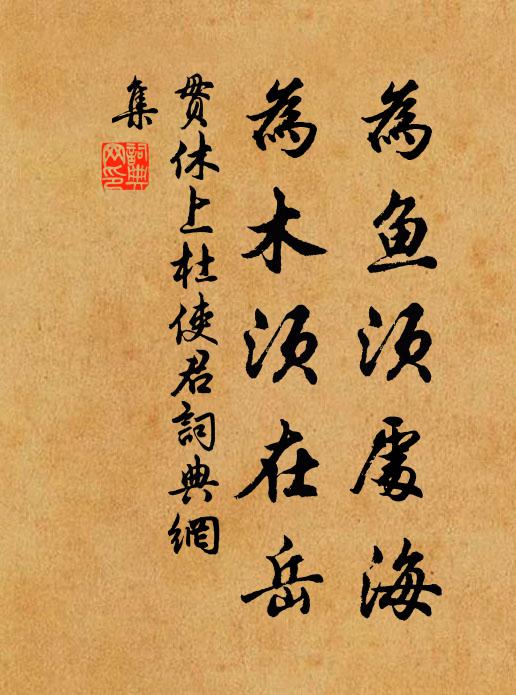 為魚须處海
為木须在岳
贯休上杜使君詞典網
集
詞典网印